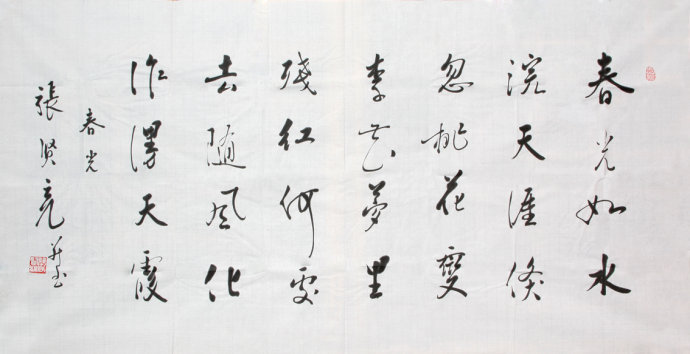 春光如水
浣天涯倏
忽桃花变
李花梦里
残红何处
去随风化
作漫天霞
春光
張贤亮并书